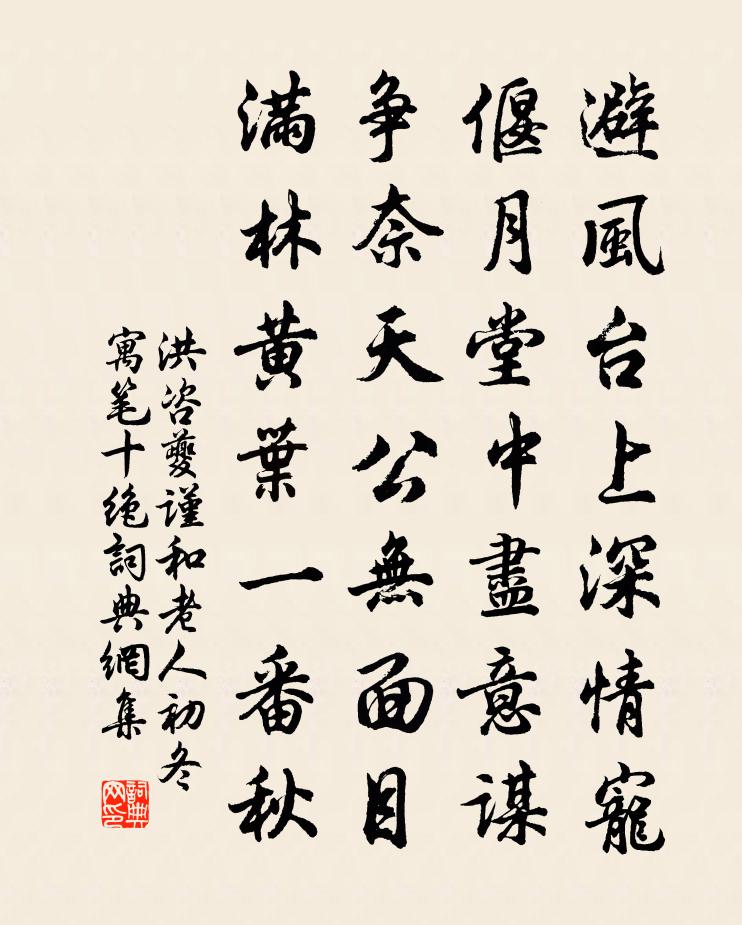 避風台上深情寵
偃月堂中盡意謀
争奈天公無面目
滿林黃葉一番秋
洪咨夔謹和老人初冬
寓笔十绝詞典網集
詞典
网印